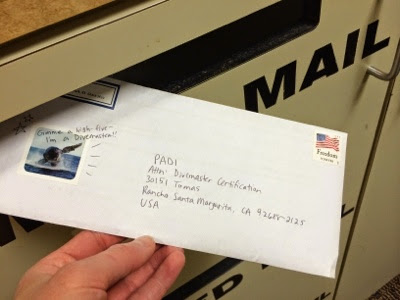 MAIL
Gimme a high five-
I'm a Divemaster!!
Freedom
PADI
Attn: Divemaster Certification
30151 Tomas
Rancho Santa Margarita, CA 92688-2125
USA